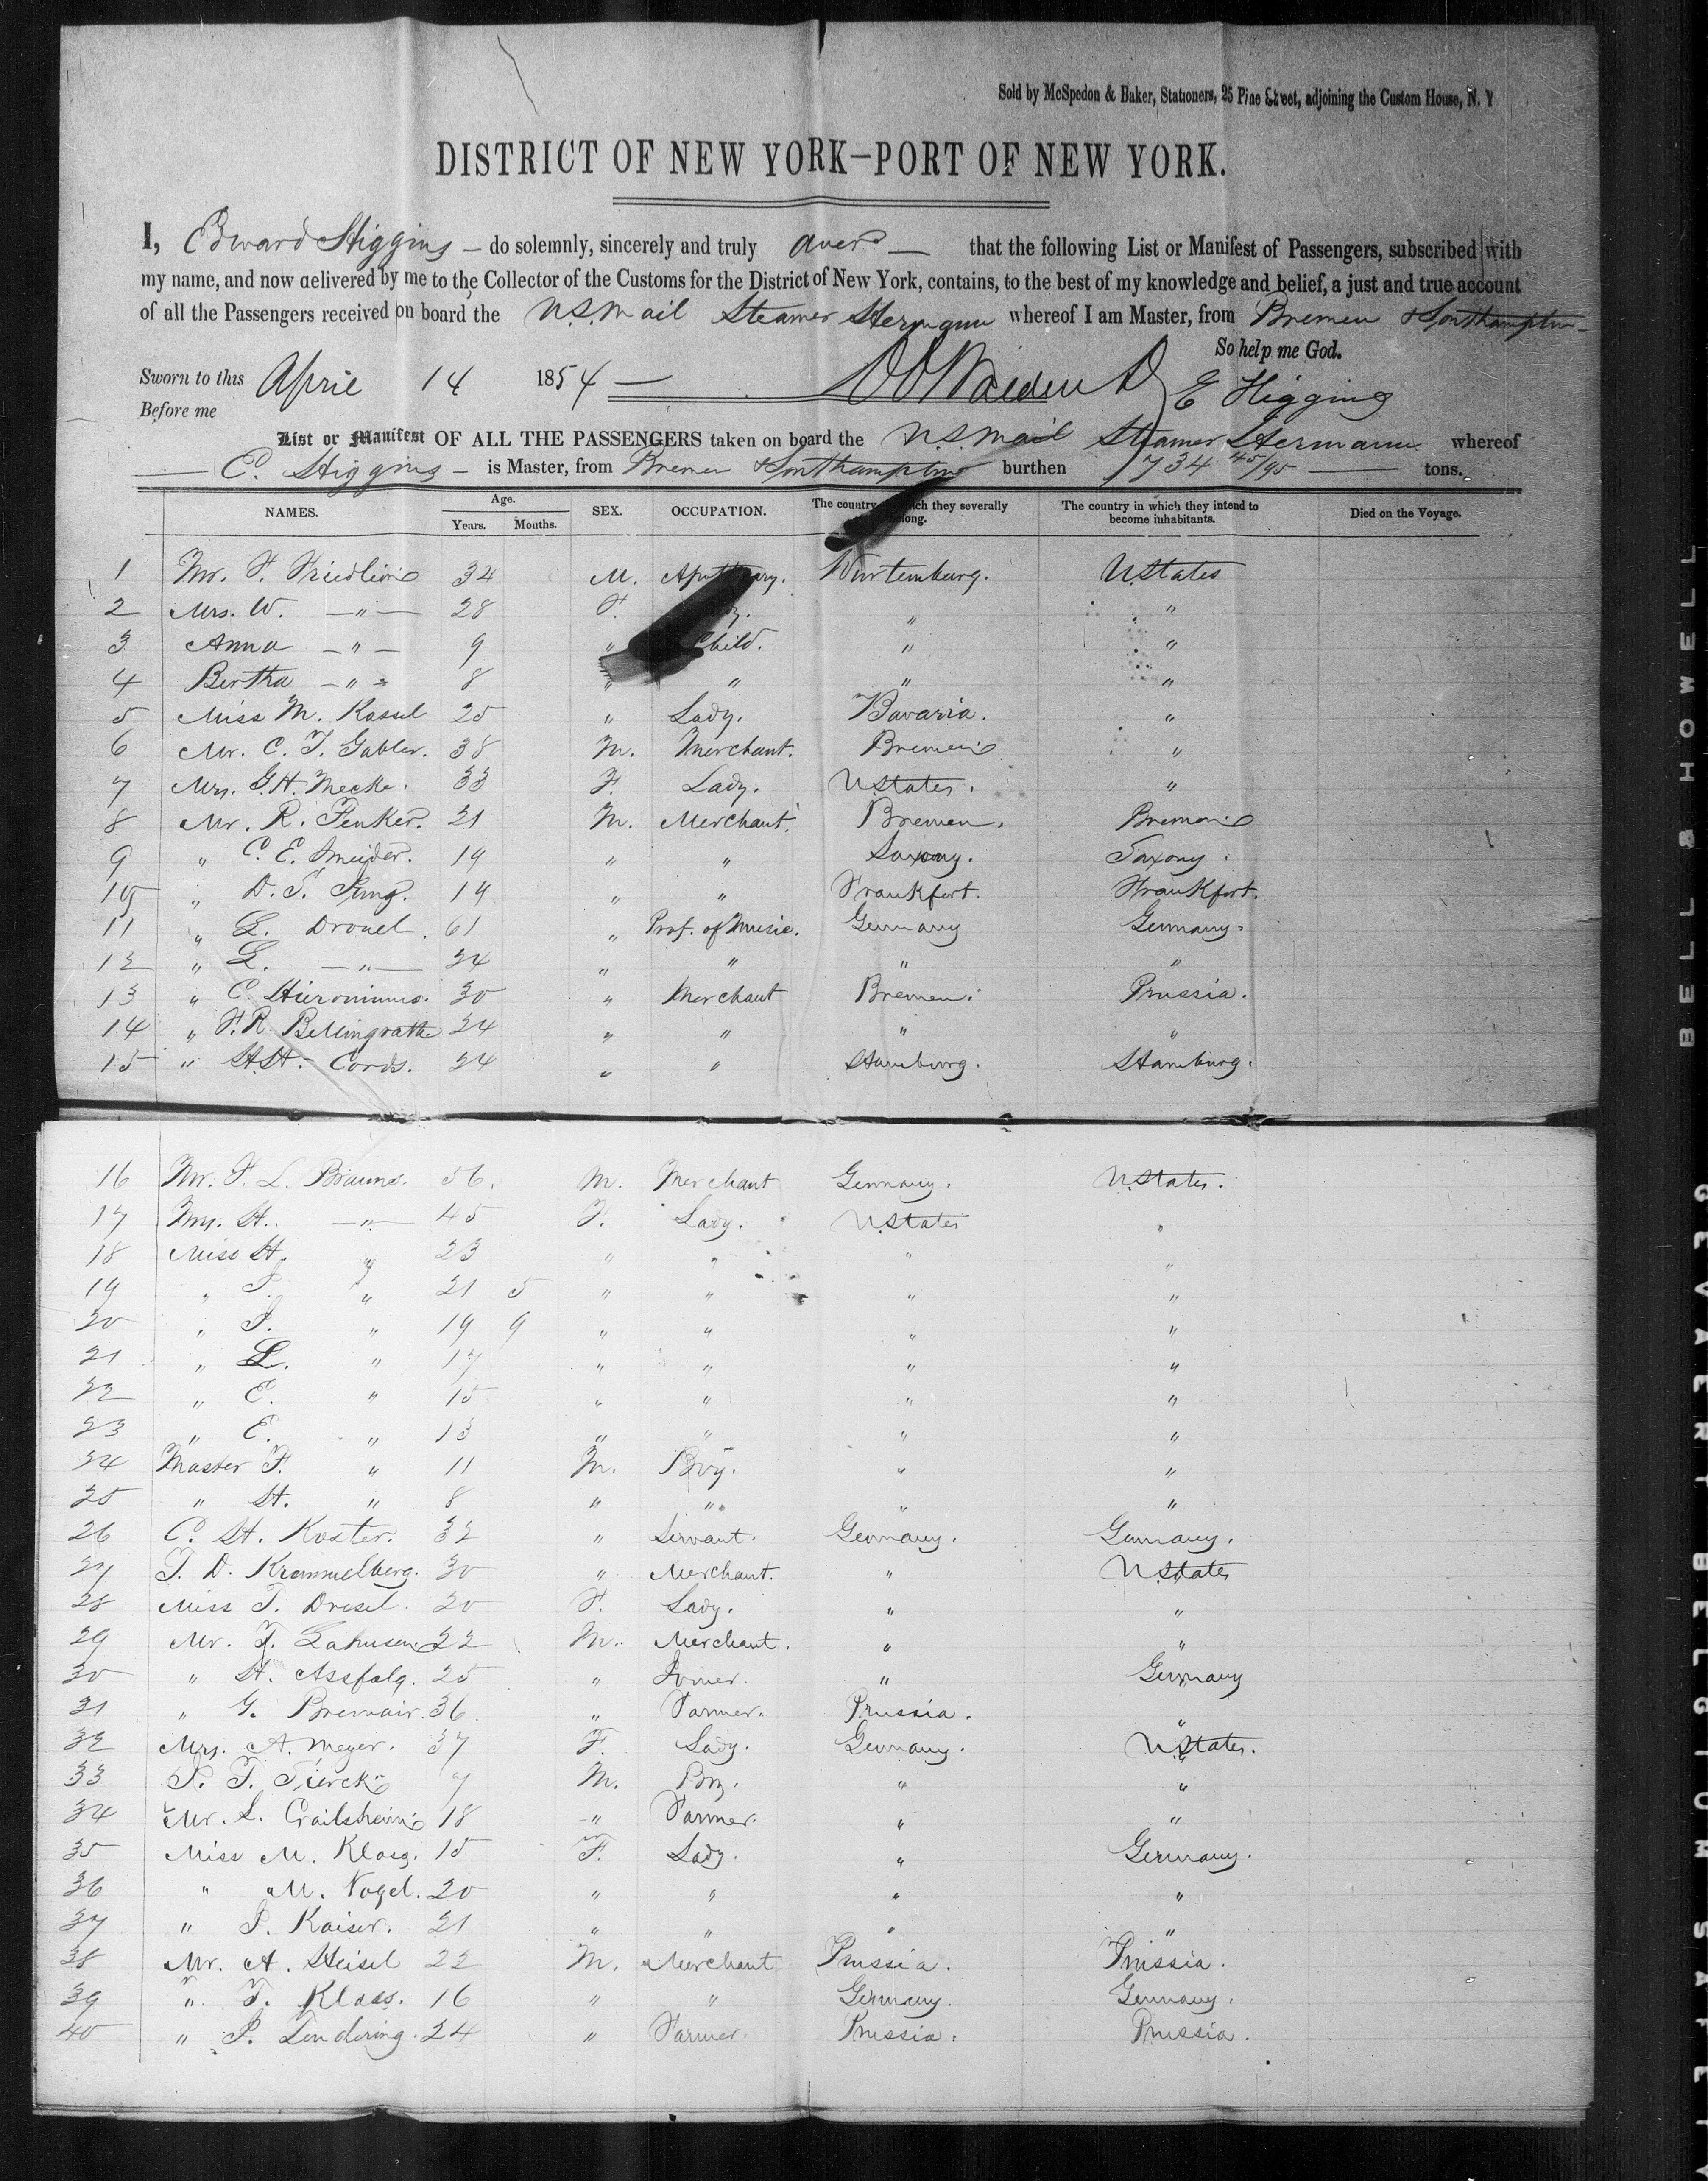 Sold by McSpedon & Baker, Stationers, 25 Pine Street, adjoining the Custom House, N. Y
DISTRICT OF NEW YORK—PORT OF NEW YORK.
I, Edward Higgins — do solemnly, sincerely and truly aver — that the following List or Manifest of Passengers, subscribed with
my name, and now delivered by me to the Collector of the Customs for the District of New York, contains, to the best of my knowledge and belief, a just and true account
of all the Passengers received on board the U.S. Mail Steamer Hermann whereof I am Master, from Bremen & Southampton
So help me God.
Sworn to this April 14 1854 — E Higgins
Before me
List or Manifest OF ALL THE PASSENGERS taken on board the U.S. Mail Steamer Hermann whereof
E. Higgins — is Master, from Bremen & Southampton burthen 1734 45/95 — tons.
NAMES. Age. Years. Months. SEX. OCCUPATION. The country which they severally belong. The country in which they intend to become inhabitants. Died on the Voyage.
1 Mr. F. 34 M. Apothecary. Wurtemburg. U.States
2 Mrs. W. —"— 28 F. "  "
3 Anna —"— 9 " Child. " "
4 Bertha —"— 8 " " " "
5 Miss M. Kassel 25 " Lady. Bavaria. "
6 Mr. C. T. Gabler. 38 M. Merchant. Bremen "
7 Mrs. G.H. Mecke. 33 F. Lady. U.States. "
8 Mr. R. Fenker. 21 M. Merchant. Bremen. Bremen
9 " C. E. 19 " " Saxony. Saxony.
10 " D. S. 19 " " Frankfort. Frankfort.
11 " L. Drouet. 61 " Prof. of Music. Germany Germany.
12 " L. —"— 24 " " " "
13 " C. Hieronimus. 30 " Merchant Bremen. Prussia.
14 " F.R. Bellingrath 24 " " " "
15 " H.H. Cords. 24 " " Hamburg. Hamburg.
16 Mr. F. L. Braune. 56. M. Merchant Germany. U.States.
17 Mrs. H. —"— 45 F. Lady. U.States "
18 Miss H. " 23 " " " "
19 " " 21 5 " " " "
20 " " 19 9 " " " "
21 " L. " 17 " " " "
22 " E. " 15 " " " "
23 " E. " 13 " " " "
24 Master F. " 11 M. Boy. " "
25 " H. " 8 " " " "
26 C. H. Koster. 32 " Servant. Germany. Germany.
27 T. D. Krommelberg. 30 " Merchant. " U.States
28 Miss T. Dresel. 20 F. Lady. " "
29 Mr. F. Lahusen 22 M. Merchant. " "
30 " H. Assfalg. 25 " Joiner. " Germany
31 " G. Bremair. 36. " Farmer. Prussia. "
32 Mrs. A. Meyer. 37 F. Lady. Germany. U.States.
33 7 M. Boy. " "
34 Mr. S. Crailsheim 18 " Farmer. " "
35 Miss M. Klaag. 15 F. Lady. " Germany.
36 " M. Vogel. 20 " " " "
37 " Kaiser. 21 " " " "
38 Mr. A. Heisel 22 M. Merchant Prussia. Prussia.
39 " T. Klaas. 16 " " Germany. Germany.
40 " P. Tendering. 24 " Farmer. Prussia. Prussia.
BELL & HOWELL
GEVAERT BELGIUM SAFE